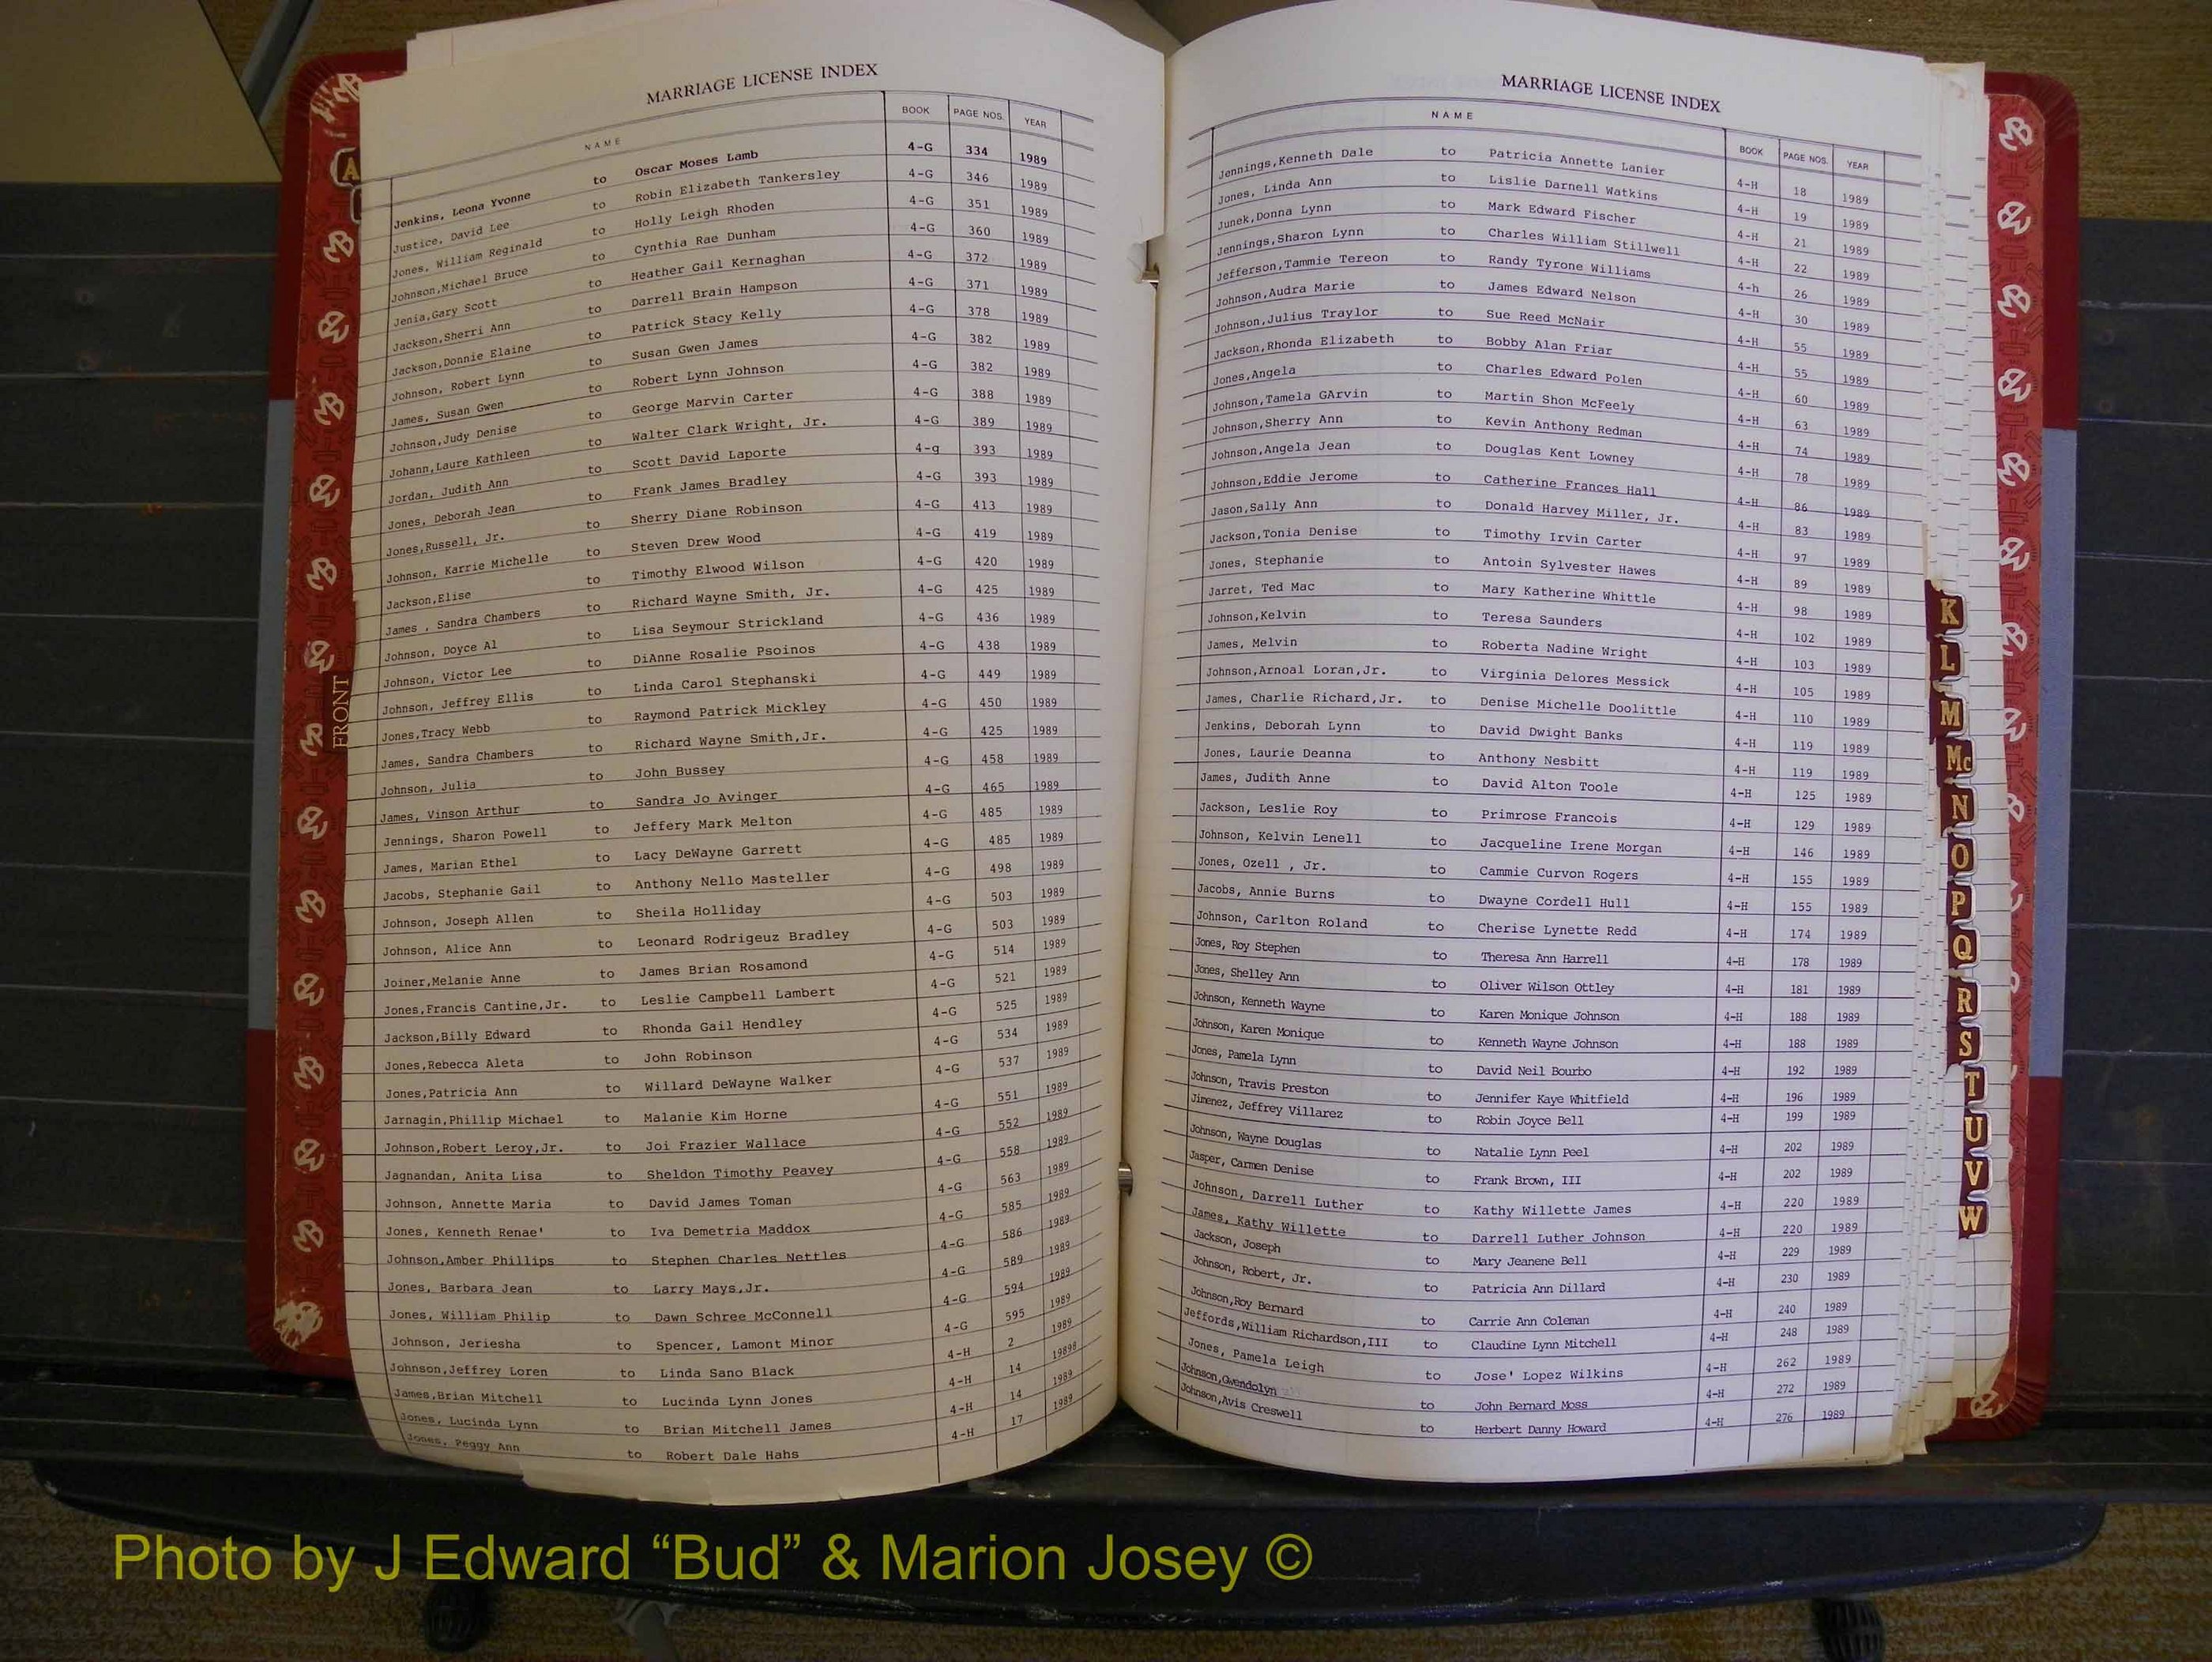 MARRIAGE LICENSE INDEX
NAME BOOK PAGE NOS. YEAR
Jenkins, Leona Yvonne to Oscar Moses Lamb 4-G 334 1989
Justice, David Lee to Robin Elizabeth Tankersley 4-G 346 1989
Jones, William Reginald to Holly Leigh Rhoden 4-G 351 1989
Johnson,Michael Bruce to Cynthia Rae Dunham 4-G 360 1989
Jenia,Gary Scott to Heather Gail Kernaghan 4-G 372 1989
Jackson,Sherri Ann to Darrell Brain Hampson 4-G 371 1989
Jackson,Donnie Elaine to Patrick Stacy Kelly 4-G 378 1989
Johnson, Robert Lynn to Susan Gwen James 4-G 382 1989
James, Susan Gwen to Robert Lynn Johnson 4-G 382 1989
Johnson,Judy Denise to George Marvin Carter 4-G 388 1989
Johann,Laure Kathleen to Walter Clark Wright, Jr. 4-G 389 1989
Jordan, Judith Ann to Scott David Laporte 4-q 393 1989
Jones, Deborah Jean to Frank James Bradley 4-G 393 1989
Jones,Russell, Jr. to Sherry Diane Robinson 4-G 413 1989
Johnson, Karrie Michelle to Steven Drew Wood 4-G 419 1989
Jackson,Elise to Timothy Elwood Wilson 4-G 420 1989
James , Sandra Chambers to Richard Wayne Smith, Jr. 4-G 425 1989
Johnson, Doyce Al to Lisa Seymour Strickland 4-G 436 1989
Johnson, Victor Lee to DiAnne Rosalie Psoinos 4-G 438 1989
Johnson, Jeffrey Ellis to Linda Carol Stephanski 4-G 449 1989
Jones,Tracy Webb to Raymond Patrick Mickley 4-G 450 1989
James, Sandra Chambers to Richard Wayne Smith,Jr. 4-G 425 1989
Johnson, Julia to John Bussey 4-G 458 1989
James, Vinson Arthur to Sandra Jo Avinger 4-G 465 1989
Jennings, Sharon Powell to Jeffery Mark Melton 4-G 485 1989
James, Marian Ethel to Lacy DeWayne Garrett 4-G 485 1989
Jacobs, Stephanie Gail to Anthony Nello Masteller 4-G 498 1989
Johnson, Joseph Allen to Sheila Holliday 4-G 503 1989
Johnson, Alice Ann to Leonard Rodrigeuz Bradley 4-G 503 1989
Joiner,Melanie Anne to James Brian Rosamond 4-G 514 1989
Jones,Francis Cantine,Jr. to Leslie Campbell Lambert 4-G 521 1989
Jackson,Billy Edward to Rhonda Gail Hendley 4-G 525 1989
Jones,Rebecca Aleta to John Robinson 4-G 534 1989
Jones,Patricia Ann to Willard DeWayne Walker 4-G 537 1989
Jarnagin,Phillip Michael to Malanie Kim Horne 4-G 551 1989
Johnson,Robert Leroy,Jr. to Joi Frazier Wallace 4-G 552 1989
Jagnandan, Anita Lisa to Sheldon Timothy Peavey 4-G 558 1989
Johnson, Annette Maria to David James Toman 4-G 563 1989
Jones, Kenneth Renae' to Iva Demetria Maddox 4-G 585 1989
Johnson,Amber Phillips to Stephen Charles Nettles 4-G 586 1989
Jones, Barbara Jean to Larry Mays,Jr. 4-G 589 1989
Jones, William Philip to Dawn Schree McConnell 4-G 594 1989
Johnson, Jeriesha to Spencer, Lamont Minor 4-G 595 1989
Johnson,Jeffrey Loren to Linda Sano Black 4-H 2 1989
James,Brian Mitchell to Lucinda Lynn Jones 4-H 14 19898
Jones, Lucinda Lynn to Brian Mitchell James 4-H 14 1989
Jones, Peggy Ann to Robert Dale Hahs 4-H 17 1989
MARRIAGE LICENSE INDEX
NAME BOOK PAGE NOS. YEAR
Jennings,Kenneth Dale to Patricia Annette Lanier 4-H 18 1989
Jones, Linda Ann to Lislie Darnell Watkins 4-H 19 1989
Junek,Donna Lynn to Mark Edward Fischer 4-H 21 1989
Jennings,Sharon Lynn to Charles William Stillwell 4-H 22 1989
Jefferson,Tammie Tereon to Randy Tyrone Williams 4-h 26 1989
Johnson,Audra Marie to James Edward Nelson 4-H 30 1989
Johnson,Julius Traylor to Sue Reed McNair 4-H 55 1989
Jackson,Rhonda Elizabeth to Bobby Alan Friar 4-H 55 1989
Jones,Angela to Charles Edward Polen 4-H 60 1989
Johnson,Tamela GArvin to Martin Shon McFeely 4-H 63 1989
Johnson,Sherry Ann to Kevin Anthony Redman 4-H 74 1989
Johnson,Angela Jean to Douglas Kent Lowney 4-H 78 1989
Johnson,Eddie Jerome to Catherine Frances Hall 4-H 86 1989
Jason,Sally Ann to Donald Harvey Miller, Jr. 4-H 83 1989
Jackson,Tonia Denise to Timothy Irvin Carter 4-H 97 1989
Jones, Stephanie to Antoin Sylvester Hawes 4-H 89 1989
Jarret, Ted Mac to Mary Katherine Whittle 4-H 98 1989
Johnson,Kelvin to Teresa Saunders 4-H 102 1989
James, Melvin to Roberta Nadine Wright 4-H 103 1989
Johnson,Arnoal Loran,Jr. to Virginia Delores Messick 4-H 105 1989
James, Charlie Richard,Jr. to Denise Michelle Doolittle 4-H 110 1989
Jenkins, Deborah Lynn to David Dwight Banks 4-H 119 1989
Jones, Laurie Deanna to Anthony Nesbitt 4-H 119 1989
James, Judith Anne to David Alton Toole 4-H 125 1989
Jackson, Leslie Roy to Primrose Francois 4-H 129 1989
Johnson, Kelvin Lenell to Jacqueline Irene Morgan 4-H 146 1989
Jones, Ozell , Jr. to Cammie Curvon Rogers 4-H 155 1989
Jacobs, Annie Burns to Dwayne Cordell Hull 4-H 155 1989
Johnson, Carlton Roland to Cherise Lynette Redd 4-H 174 1989
Jones, Roy Stephen to Theresa Ann Harrell 4-H 178 1989
Jones, Shelley Ann to Oliver Wilson Ottley 4-H 181 1989
Johnson, Kenneth Wayne to Karen Monique Johnson 4-H 188 1989
Johnson, Karen Monique to Kenneth Wayne Johnson 4-H 188 1989
Jones, Pamela Lynn to David Neil Bourbo 4-H 192 1989
Johnson, Travis Preston to Jennifer Kaye Whitfield 4-H 196 1989
Jimenez, Jeffrey Villarez to Robin Joyce Bell 4-H 199 1989
Johnson, Wayne Douglas to Natalie Lynn Peel 4-H 202 1989
Jasper, Carmen Denise to Frank Brown, III 4-H 202 1989
Johnson, Darrell Luther to Kathy Willette James 4-H 220 1989
James, Kathy Willette to Darrell Luther Johnson 4-H 220 1989
Jackson, Joseph to Mary Jeanene Bell 4-H 229 1989
Johnson, Robert, Jr. to Patricia Ann Dillard 4-H 230 1989
Johnson,Roy Bernard to Carrie Ann Coleman 4-H 240 1989
Jeffords,William Richardson,III to Claudine Lynn Mitchell 4-H 248 1989
Jones, Pamela Leigh to Jose' Lopez Wilkins 4-H 262 1989
Johnson,Gwendolyn to John Bernard Moss 4-H 272 1989
Johnson,Avis Creswell to Herbert Danny Howard 4-H 276 1989
A
FRONT
K
L
M
Mc
N
O
P
Q
R
S
T
U
V
W
Photo by J Edward “Bud” & Marion Josey ©